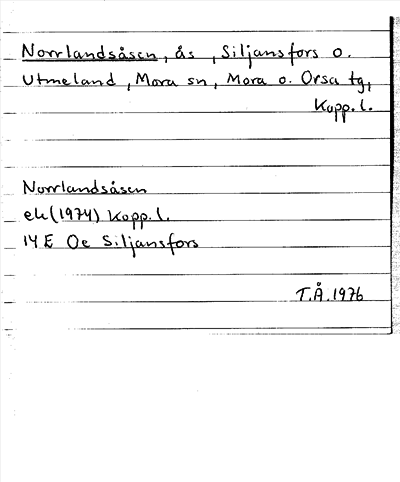 Norrlandsåsen, ås, Siljansfors o.
Utmeland, Mora sn, Mora o. Orsa tg,
Kopp. l.
Norrlandsåsen
ek (1974) Kopp. l.
14 E Oe Siljansfors
T.Å. 1976